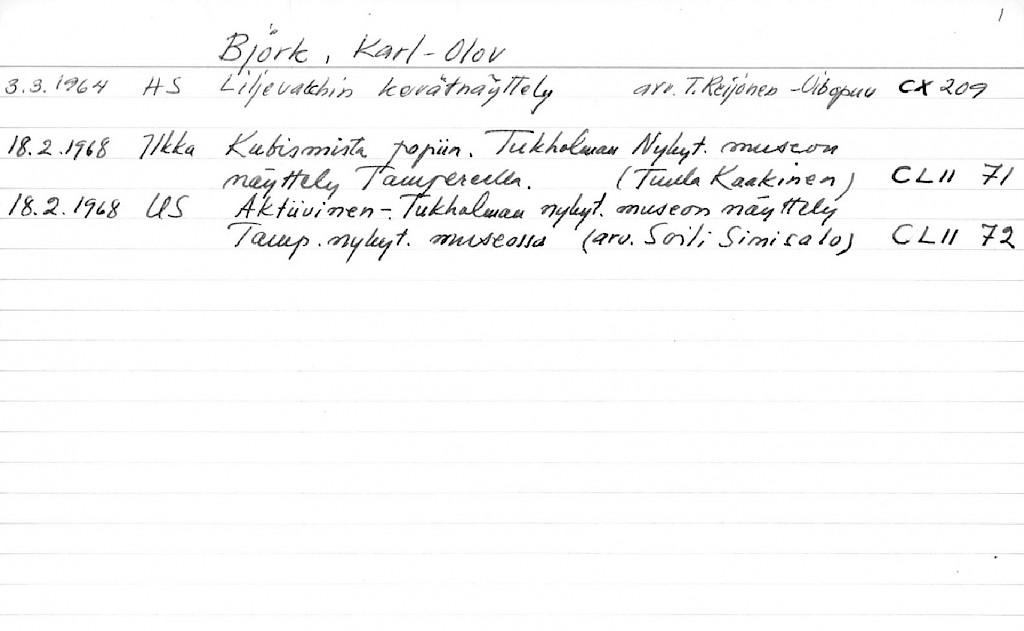 1
Björk, Karl-Olov
3.3.1964 HS Liljevalchin kevätnäyttely arv. T. Reijonen - Uibopuu CX 209
18.2.1968 Ilkka Kubismista popiin. Tukholman Nykyt. museon
näyttely Tampereella. (Tuula Kaakinen) CLII 71
18.2.1968 US Aktiivinen - Tukholman nykyt. museon näyttely
Tamp. nykyt. museossa (arv. Soili Sinisalo) CLII 72